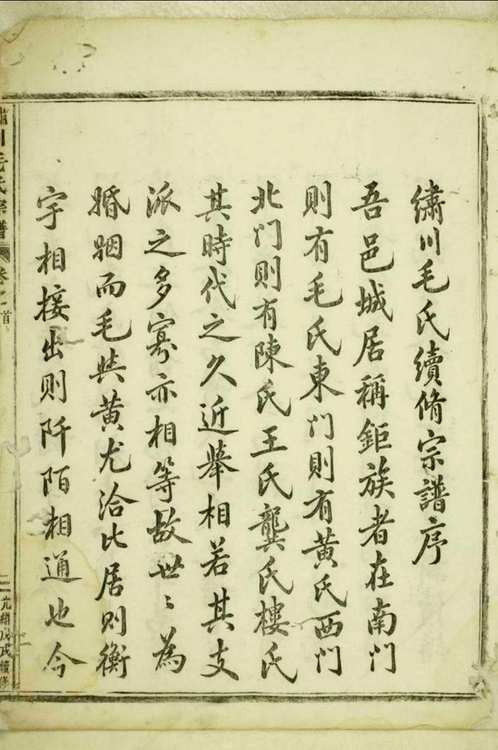 繡川毛氏續脩宗譜序
吾邑城居稱鉅族者在南門
則有毛氏東門則有黃氏西門
北門則有陳氏王氏龔氏樓氏
其時代之久近舉相若其支
派之多寡亦相等故世〻為
婚姻而毛與黃尤洽比居則衡
宇相接出則阡陌相通也今
繡川毛氏宗譜 卷之首
光緒戊戌續修